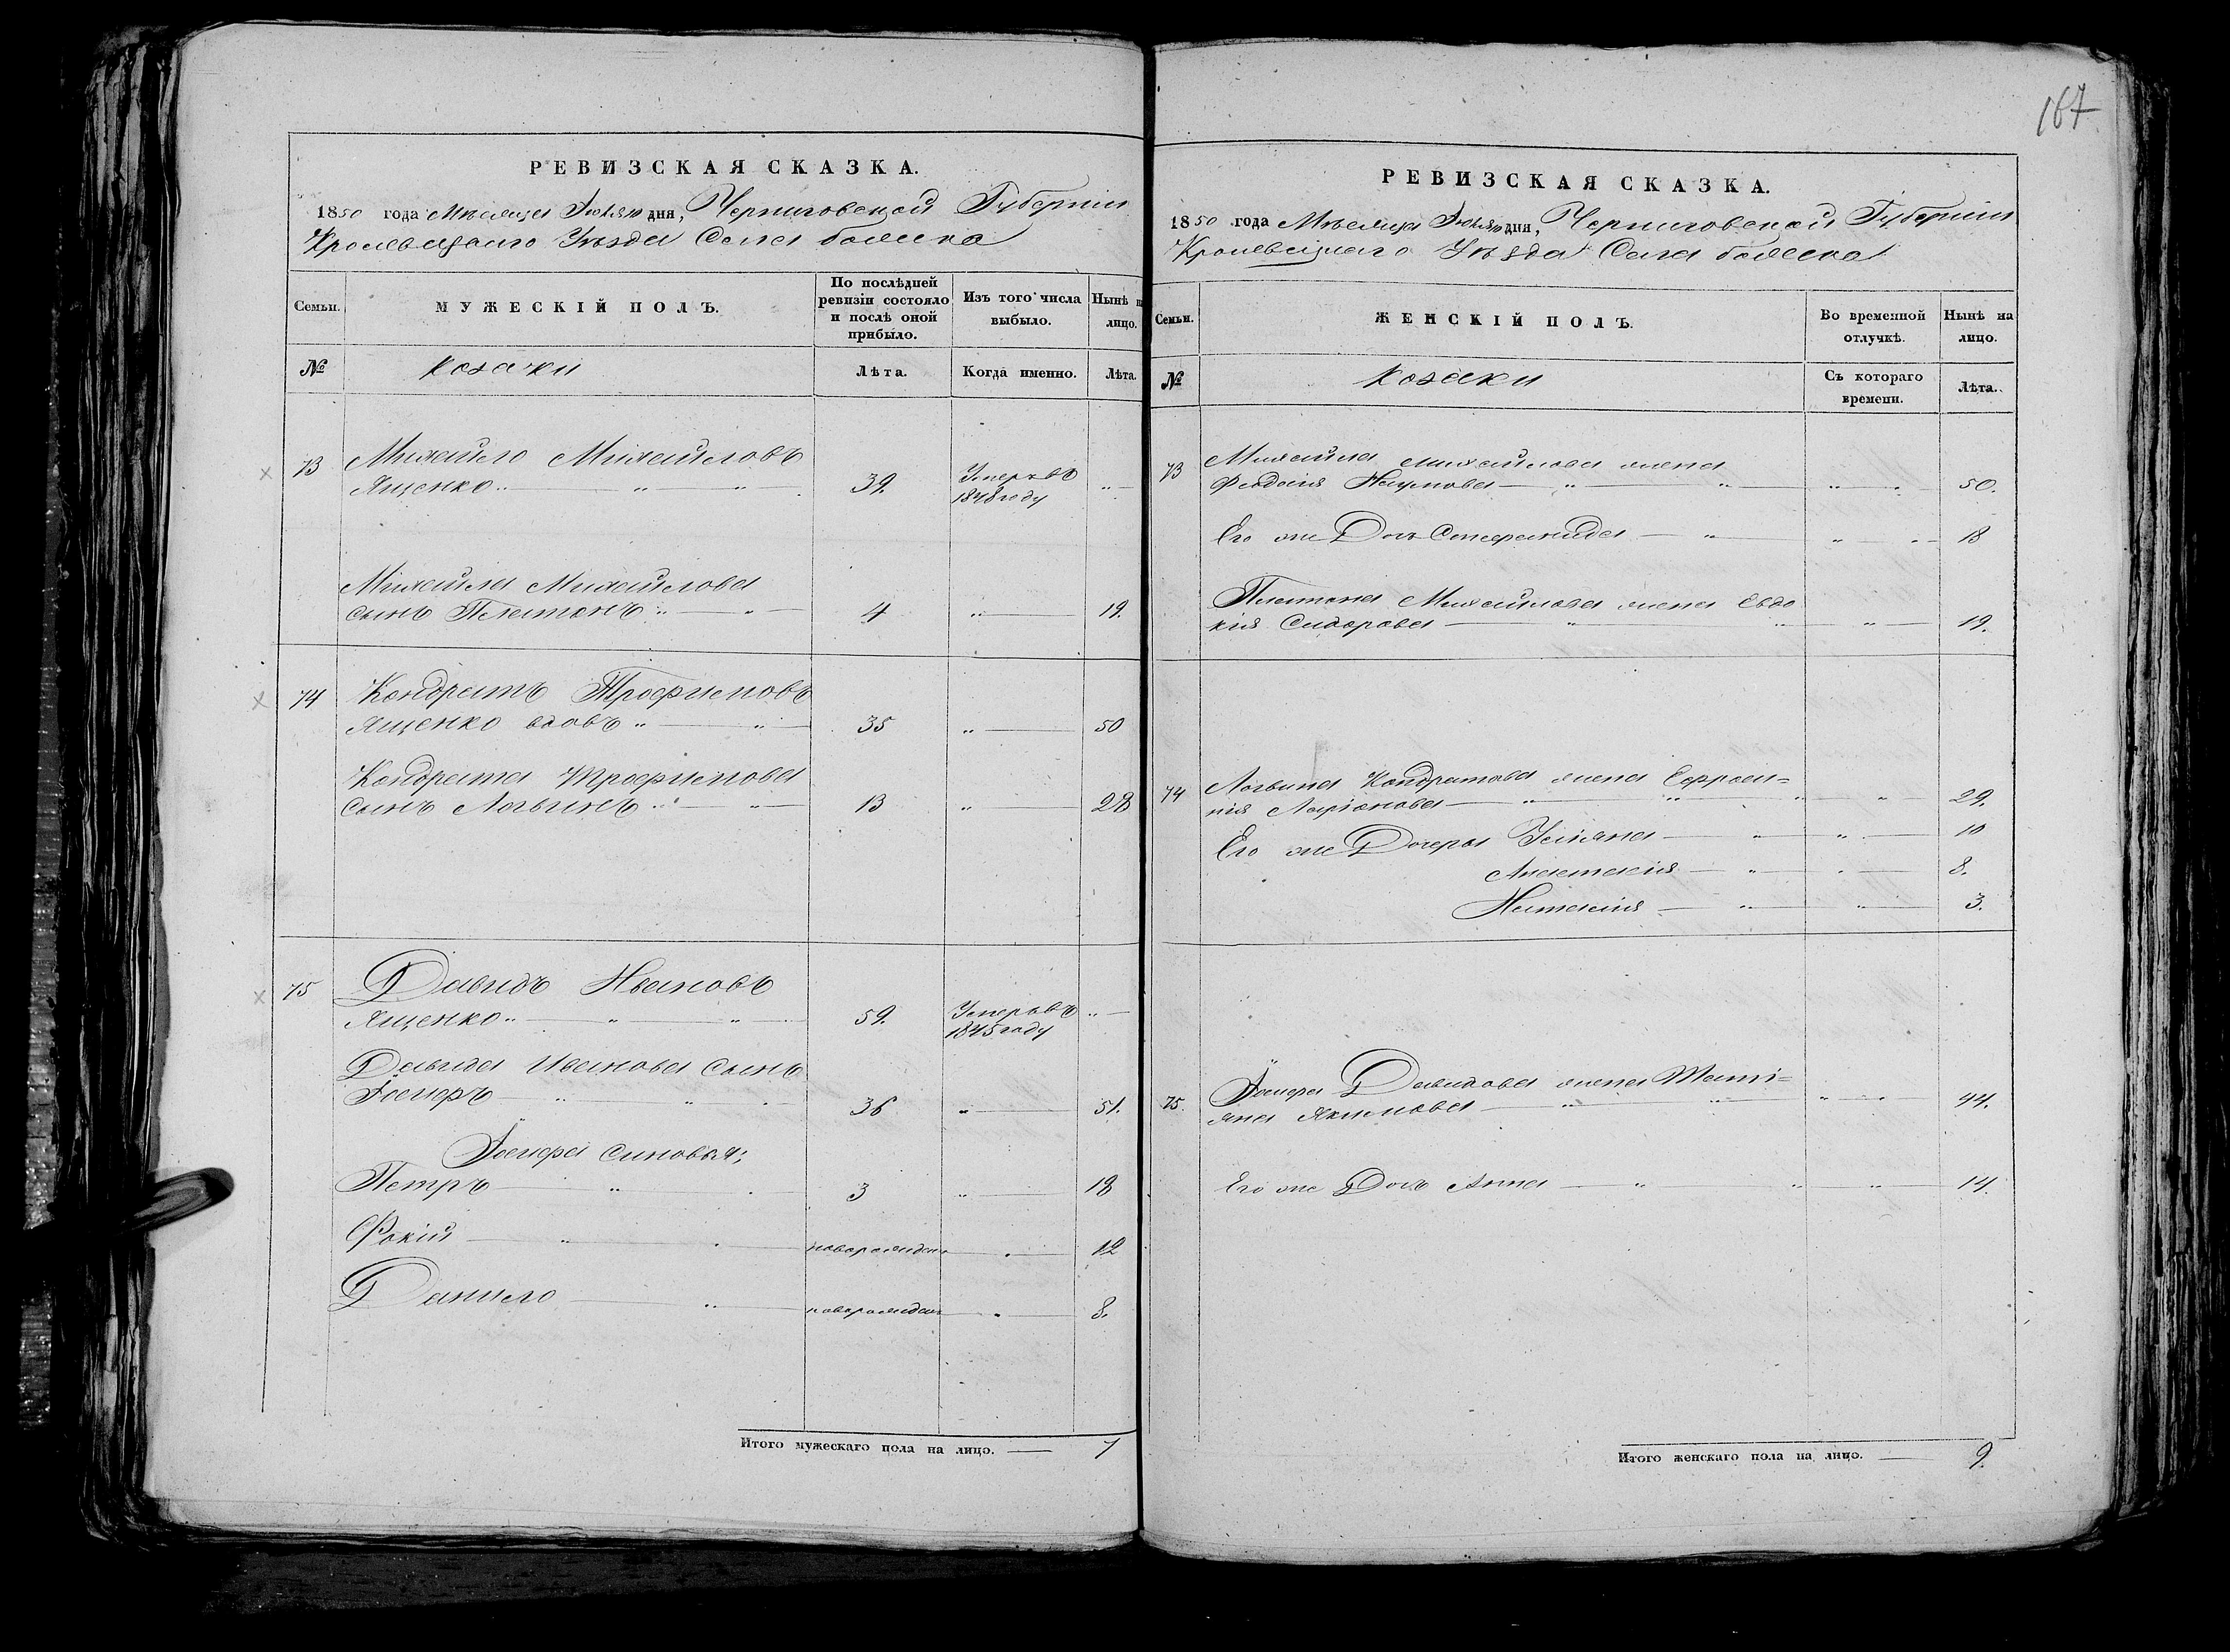 167
РЕВИЗСКАЯ СКАЗКА.
1850 года Мѣсяца Іюля дня, Черниговской Губерніи
Кролевецкаго Уѣзда Села
Семьи. МУЖЕСКІЙ ПОЛЪ. По послѣдней ревизіи состояло и послѣ оной прибыло. Изъ того числа выбыло. Нынѣ на лицо.
№ козаки Лѣта. Когда именно. Лѣта.
73 Михайло Михайловъ
Ященко 39. Умеръ въ 1848 году
Михайла Михайлова
сынъ Платонъ 4 19.
74 Кондратъ Трофимовъ
Ященко вдовъ 35 50
Кондрата Трофимова
сынъ Логвинъ 13 28
75 Давидъ Ивановъ
Ященко 59. Умеръ въ 1845 году
Давида Иванова сынъ
36 51.
синовья;
Петръ 3 18
Фокій новорожден 12
Данило новорожден 8.
Итого мужескаго пола на лицо. 7
РЕВИЗСКАЯ СКАЗКА.
1850 года Мѣсяца Іюля дня, Черниговской Губерніи
Кролевецкаго Уѣзда Села
Семьи. ЖЕНСКІЙ ПОЛЪ. Во временной отлучкѣ. Нынѣ на лицо.
№ Козаки Съ котораго времени. Лѣта.
73 Михайла Михайлова жена
Феодосія Наумова 50.
Его же Дочь 18
Платона Михайлова жена Евдо
кия Сидорова 19.
74 Логвина Кондратова жена Ефроси=
нія Ларіонова 29.
Его же Дочеры Уліяна 10
Анастасія 8.
Наталія 3.
75. Давидова жена Татті=
яна Якимова 44.
Его же Дочь Анна 14.
Итого женскаго пола на лицо. 9.